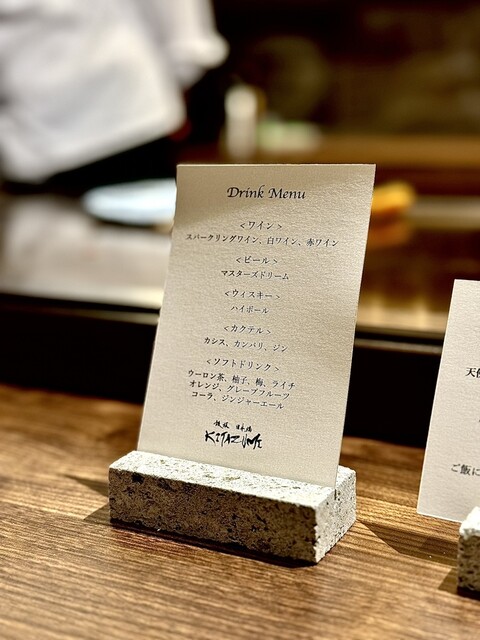 Drink Menu
<ワイン>
スパークリングワイン、白ワイン、赤ワイン
<ビール>
マスターズドリーム
<ウィスキー>
ハイボール
<カクテル>
カシス、カンパリ、ジン
<ソフトドリンク>
ウーロン茶、柚子、梅、ライチ
オレンジ、グレープフルーツ
コーラ、ジンジャーエール
KITAZUME
天使
ご飯に